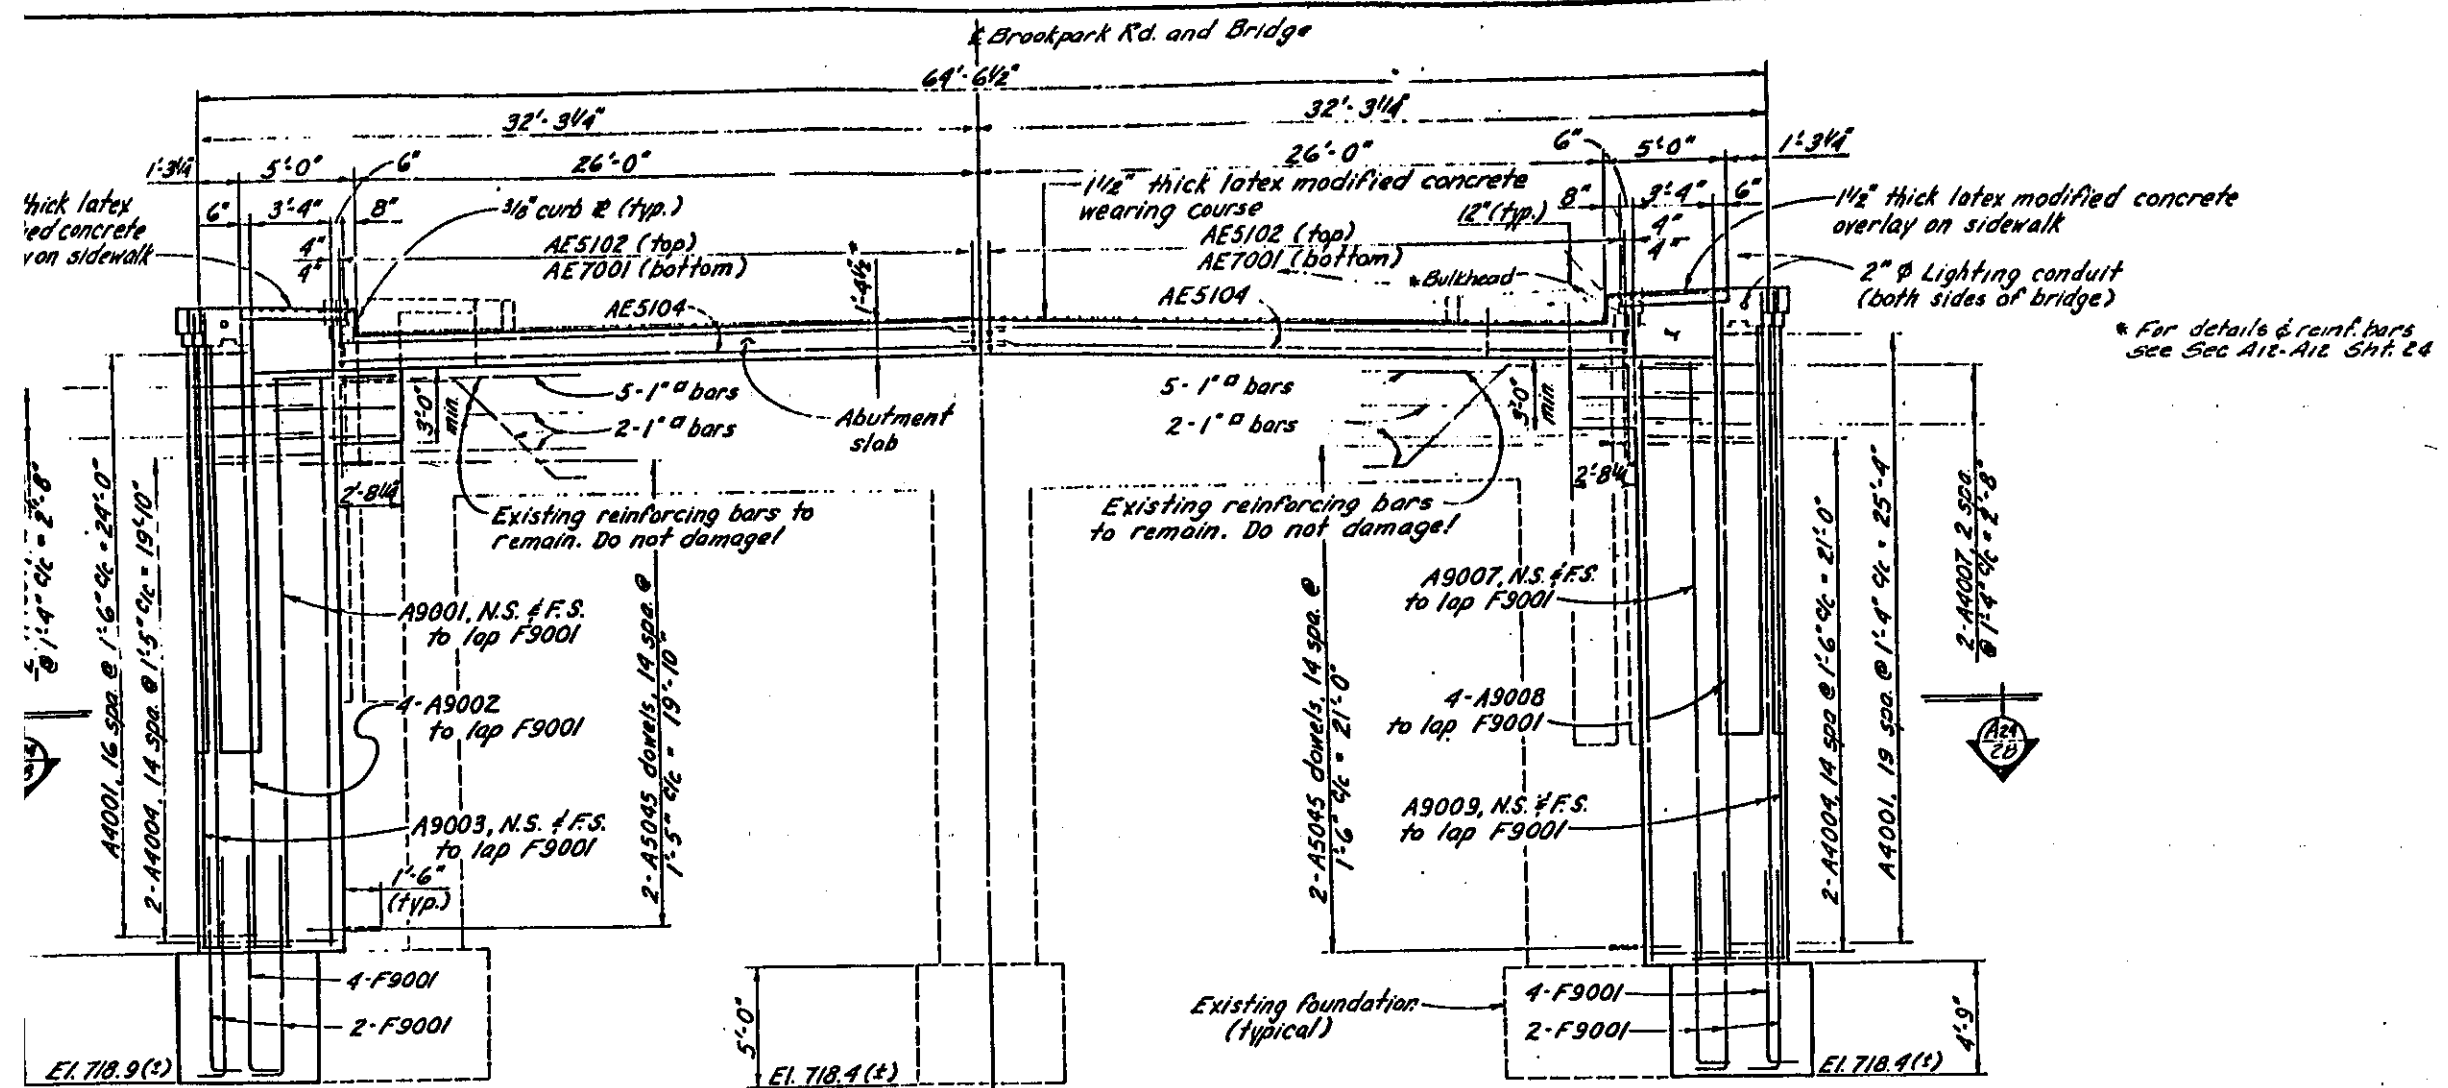 ℄ Brookpark Rd. and Bridge
64'-6 1/2"
32'-3 1/4"
32'-3 1/4"
1'-3 1/4"
5'-0"
6"
26'-0"
26'-0"
6"
5'-0"
1'-3 1/4"
thick latex
ed concrete
on sidewalk
6"
3'-4"
8"
4"
4"
3/8" curb ℄ (typ.)
AE5102 (top)
AE7001 (bottom)
AE5104
1'-4 1/2"
1 1/2" thick latex modified concrete
wearing course
12" (typ.)
AE5102 (top)
AE7001 (bottom)
* Bulkhead
AE5104
8"
3'-4"
6"
4"
4"
1 1/2" thick latex modified concrete
overlay on sidewalk
2" ⌀ Lighting conduit
(both sides of bridge)
* For details & reinf. bars
see Sec A12-A12 Sht. 24
5-1" ▢ bars
2-1" ▢ bars
3'-0"
min.
Abutment
slab
5-1" ▢ bars
2-1" ▢ bars
3'-0"
min.
2'-8 1/4"
2'-8 1/4"
Existing reinforcing bars to
remain. Do not damage!
Existing reinforcing bars
to remain. Do not damage!
@ 1'-4" c/c = 2'-8"
A4001, 16 spa. @ 1'-6" c/c = 24'-0"
2-A4004, 14 spa. @ 1'-5" c/c = 19'-10"
A9001, N.S. & F.S.
to lap F9001
4-A9002
to lap F9001
A9003, N.S. & F.S.
to lap F9001
1'-6"
(typ.)
2-A5045 dowels, 14 spa. @
1'-5" c/c = 19'-10"
2-A5045 dowels, 14 spa. @
1'-6" c/c = 21'-0"
A9007, N.S. & F.S.
to lap F9001
4-A9008
to lap F9001
A9009, N.S. & F.S.
to lap F9001
2-A4004, 14 spa @ 1'-6" c/c = 21'-0"
A4001, 19 spa. @ 1'-4" c/c = 25'-4"
2-A4007, 2 spa.
@ 1'-4" c/c = 2'-8"
A24
28
4-F9001
2-F9001
El. 718.9 (±)
5'-0"
El. 718.4 (±)
Existing foundation
(typical)
4-F9001
2-F9001
El. 718.4 (±)
4'-9"